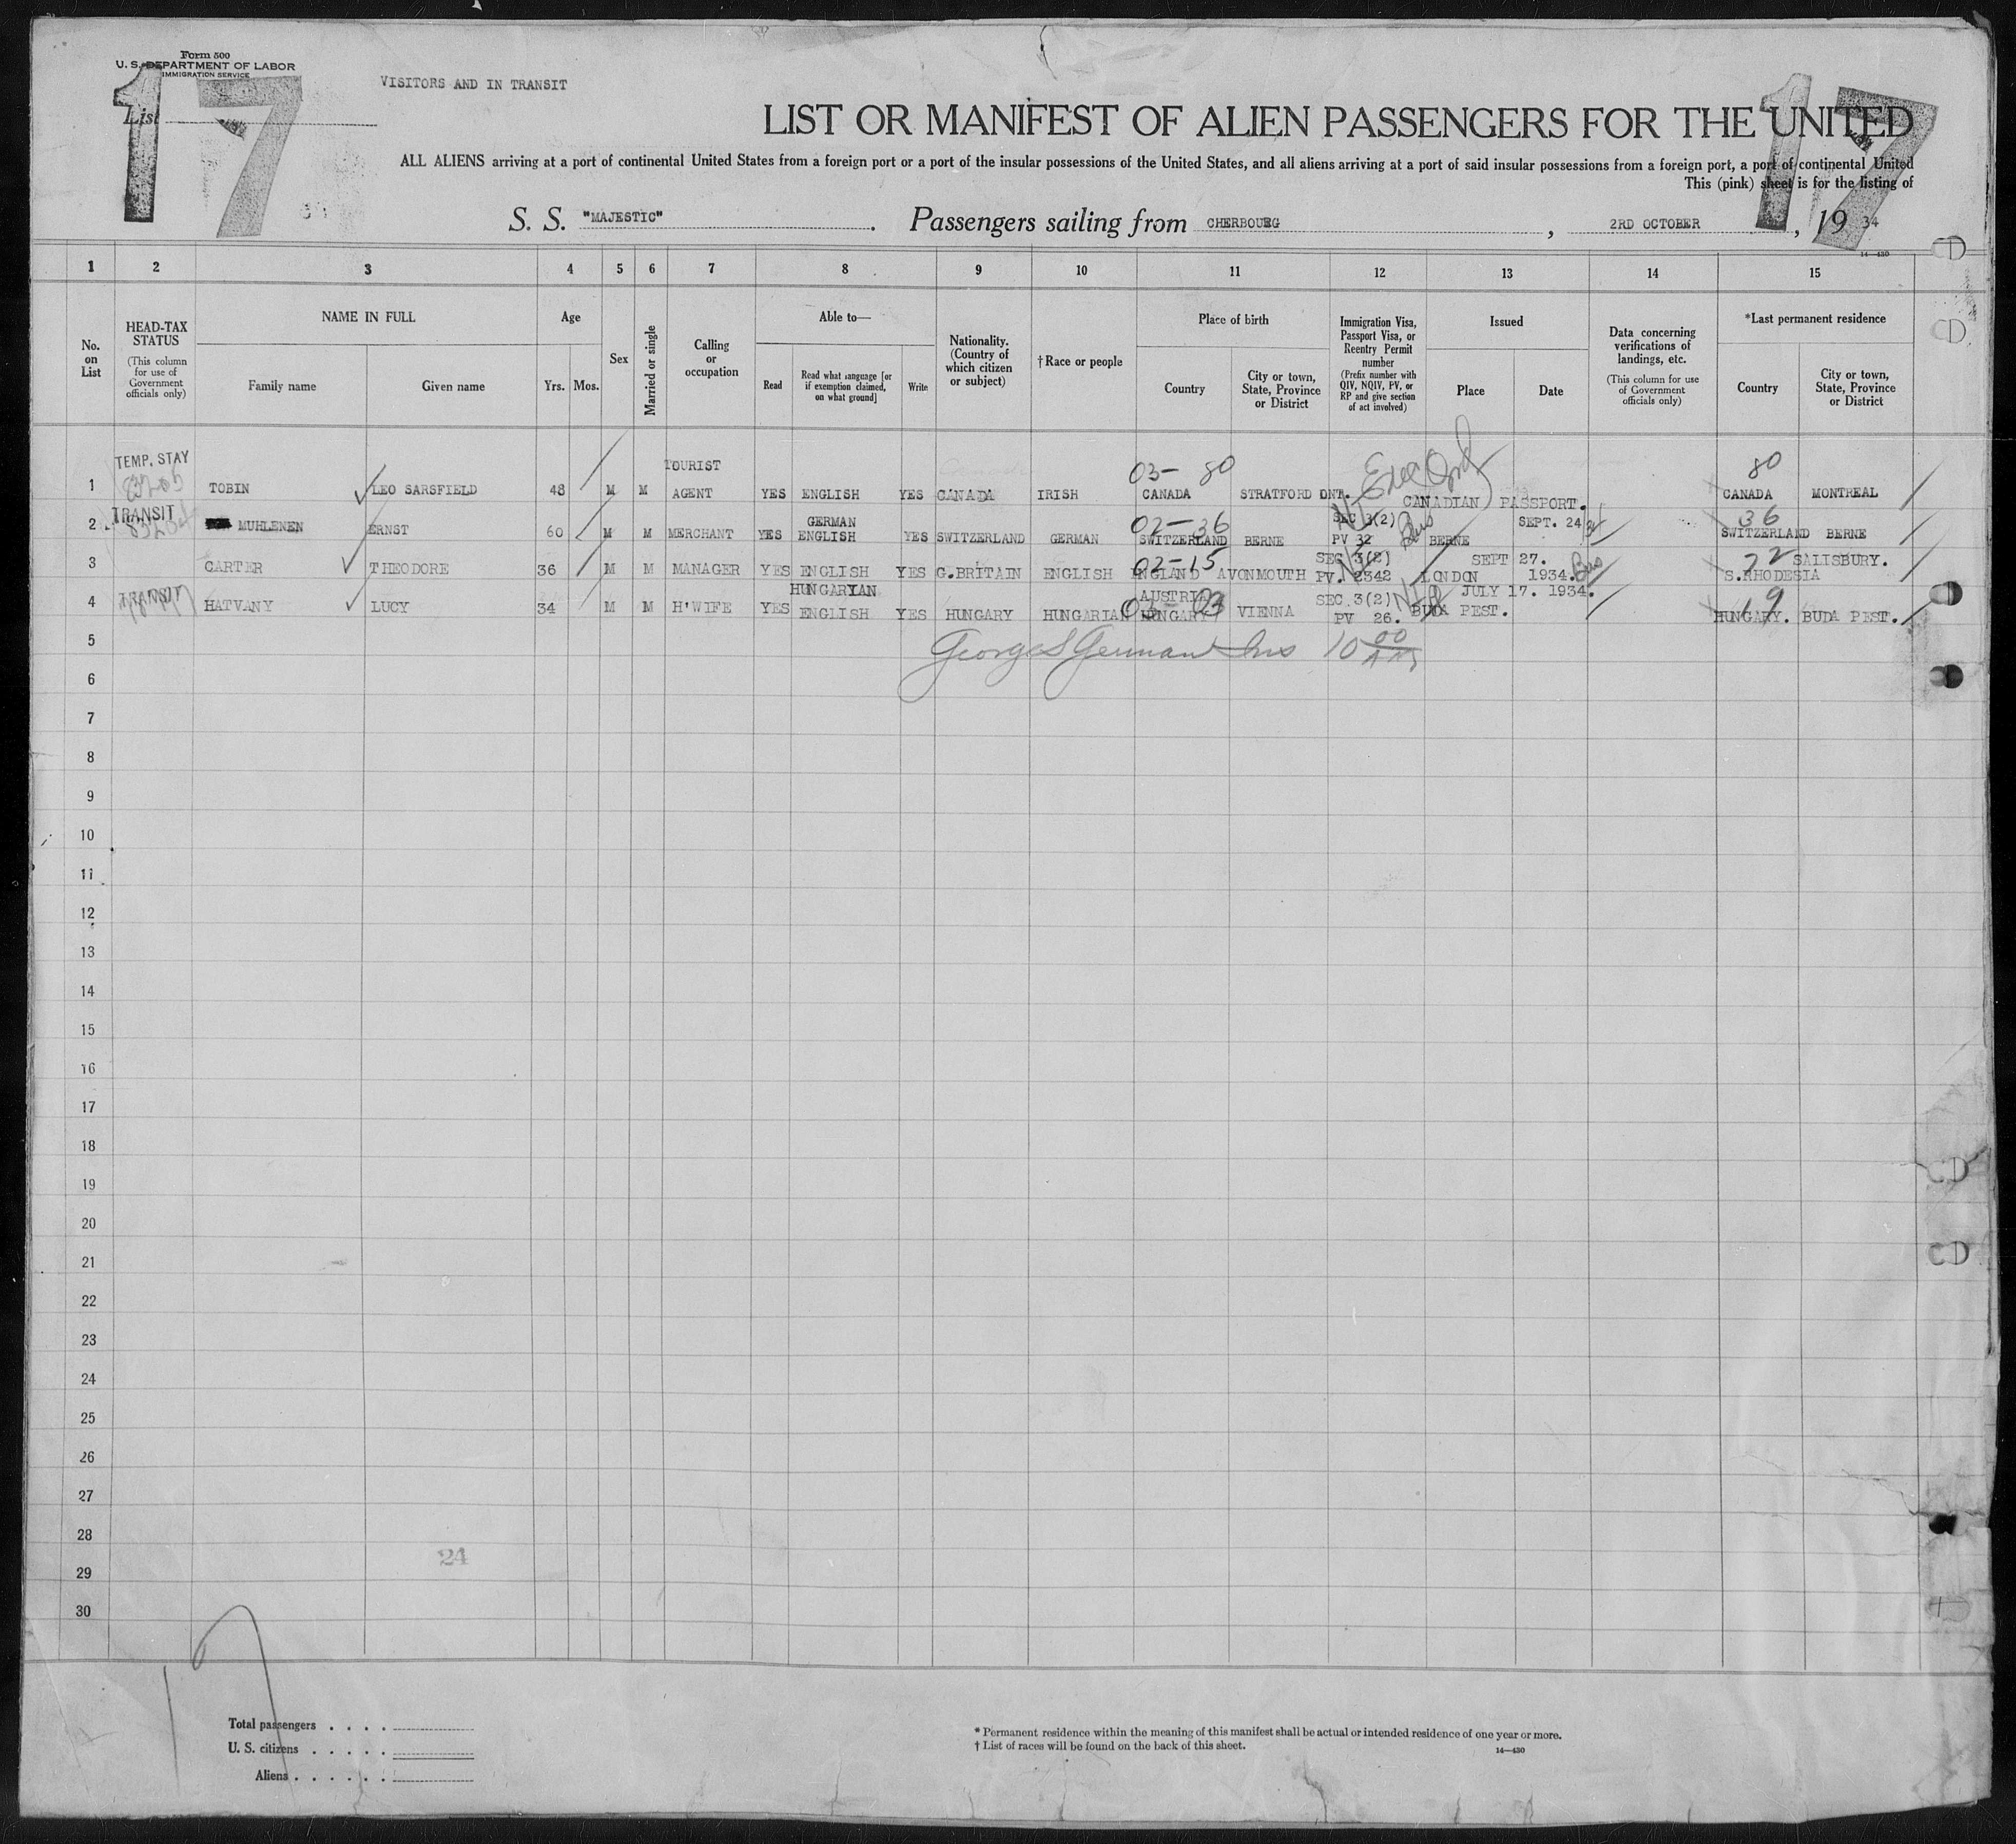 Form 500
U. S. DEPARTMENT OF LABOR
IMMIGRATION SERVICE
VISITORS AND IN TRANSIT
List
17
17
LIST OR MANIFEST OF ALIEN PASSENGERS FOR THE UNITED
ALL ALIENS arriving at a port of continental United States from a foreign port or a port of the insular possessions of the United States, and all aliens arriving at a port of said insular possessions from a foreign port, a port of continental United
This (pink) sheet is for the listing of
S. S. "MAJESTIC". Passengers sailing from CHERBOURG, 2RD OCTOBER, 19 34
14—430
1 2 3 4 5 6 7 8 9 10 11 12 13 14 15
No. on List
HEAD-TAX STATUS (This column for use of Government officials only)
NAME IN FULL
Family name Given name
Age
Yrs. Mos.
Sex
Married or single
Calling or occupation
Able to—
Read Read what language [or if exemption claimed, on what ground] Write
Nationality. (Country of which citizen or subject)
† Race or people
Place of birth
Country City or town, State, Province or District
Immigration Visa, Passport Visa, or Reentry Permit number (Prefix number with QIV, NQIV, PV, or RP and give section of act involved)
Issued
Place Date
Data concerning verifications of landings, etc. (This column for use of Government officials only)
*Last permanent residence
Country City or town, State, Province or District
TEMP. STAY TOURIST 03- 80 80
1 TOBIN LEO SARSFIELD 48 M M AGENT YES ENGLISH YES CANADA IRISH CANADA STRATFORD ONT. CANADIAN PASSPORT. CANADA MONTREAL
TRANSIT GERMAN 02-36 SEC 3(2) SEPT. 24 36
2 MUHLENEN ERNST 60 M M MERCHANT YES ENGLISH YES SWITZERLAND GERMAN SWITZERLAND BERNE PV 32 Bus BERNE SWITZERLAND BERNE
02-15 SEC 3(2) SEPT 27. 22 SALISBURY.
3 CARTER THEODORE 36 M M MANAGER YES ENGLISH YES G.BRITAIN ENGLISH ENGLAND AVONMOUTH PV. 2342 LONDON 1934. Bus S.RHODESIA
TRANSIT HUNGARIAN AUSTRIA SEC 3(2) JULY 17. 1934. 19
4 HATVANY LUCY 34 M M H'WIFE YES ENGLISH YES HUNGARY HUNGARIAN HUNGARY VIENNA PV 26. BUDA PEST. HUNGARY. BUDA PEST.
5 George S German Ins 10 00 AM
6
7
8
9
10
11
12
13
14
15
16
17
18
19
20
21
22
23
24
25
26
27
28
24
29
30
17
Total passengers
U. S. citizens
Aliens
* Permanent residence within the meaning of this manifest shall be actual or intended residence of one year or more.
† List of races will be found on the back of this sheet.
14—430